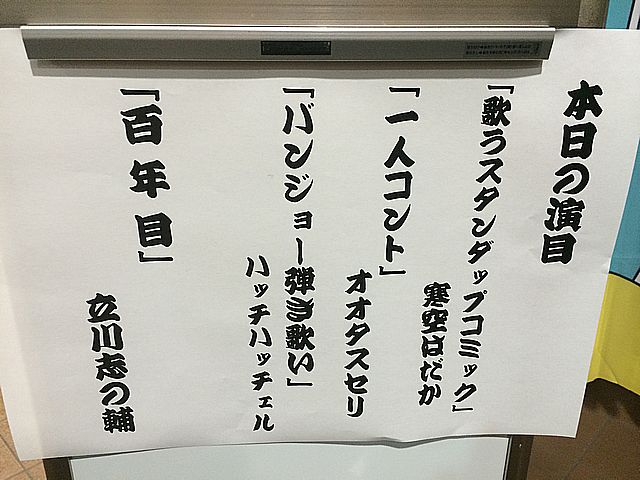 本日の演目
「歌うスタンダップコミック」
寒空はだか
「一人コント」
オオタスセリ
「バンジョー弾き歌い」
ハッチハッチェル
「百年目」
立川志の輔